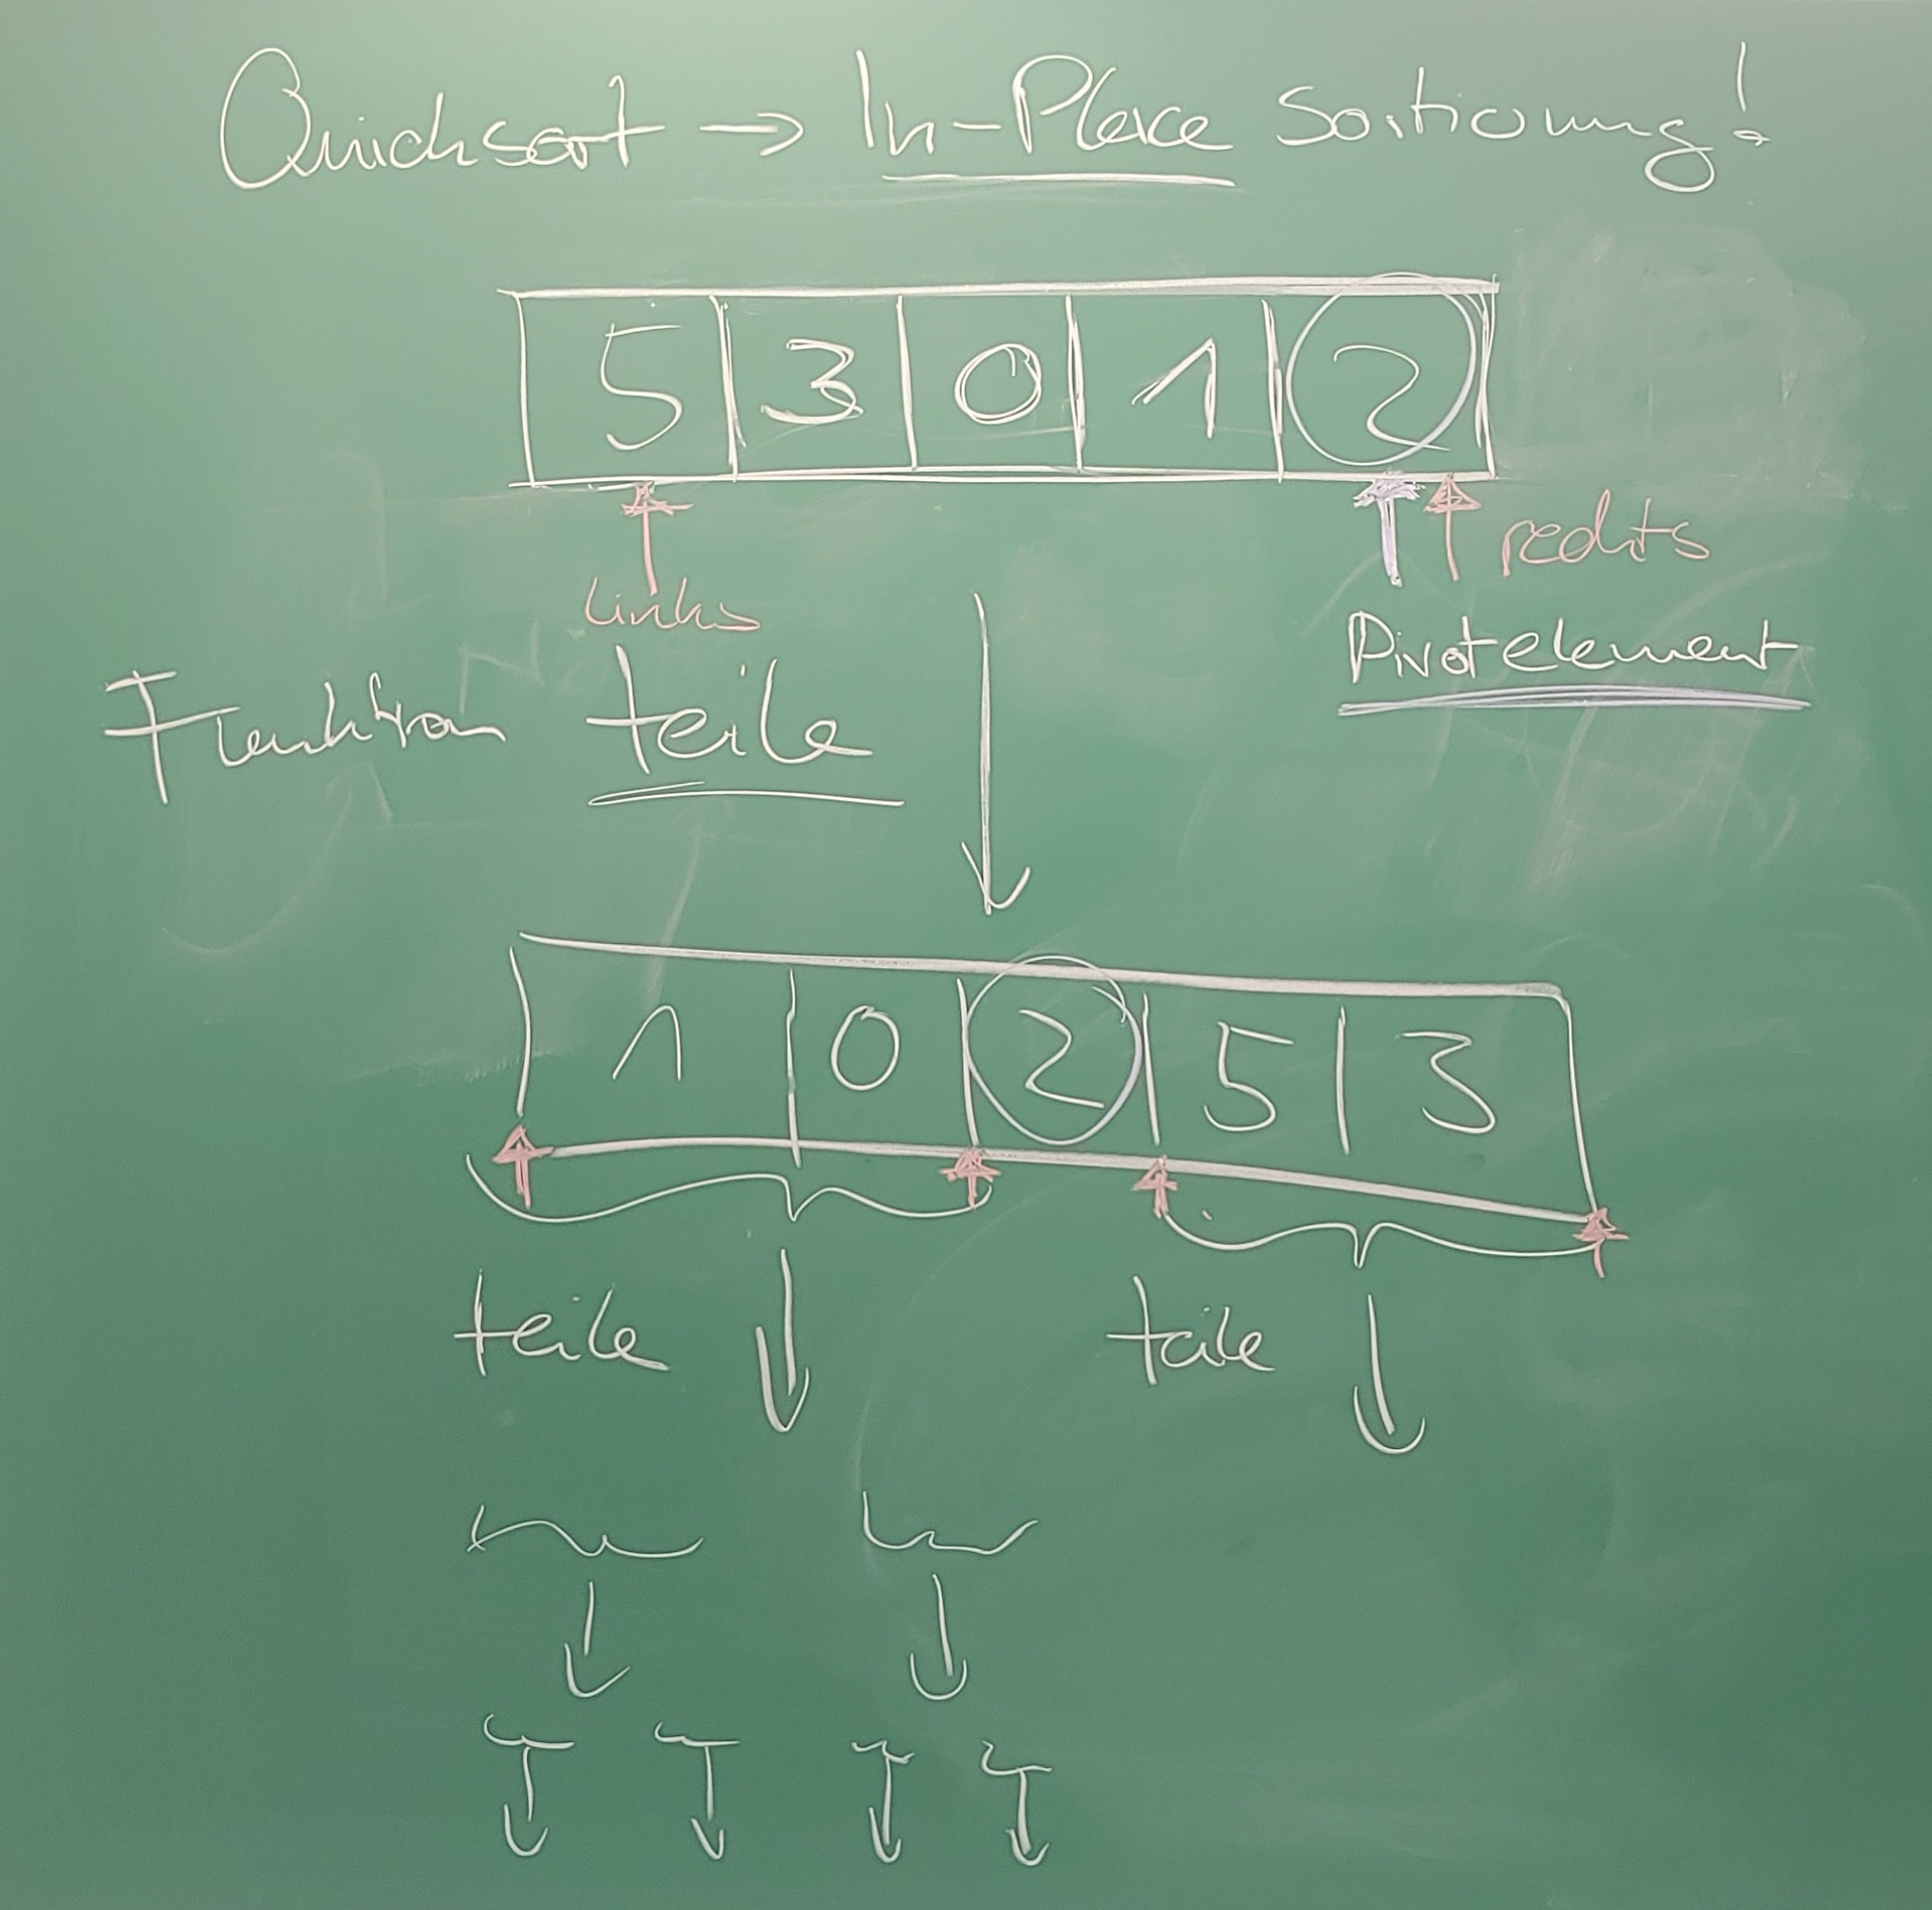 Quicksort → In-Place Sortierung!
5 3 0 1 2
links
rechts
Pivotelement
Funktion teile
1 0 2 5 3
teile teile